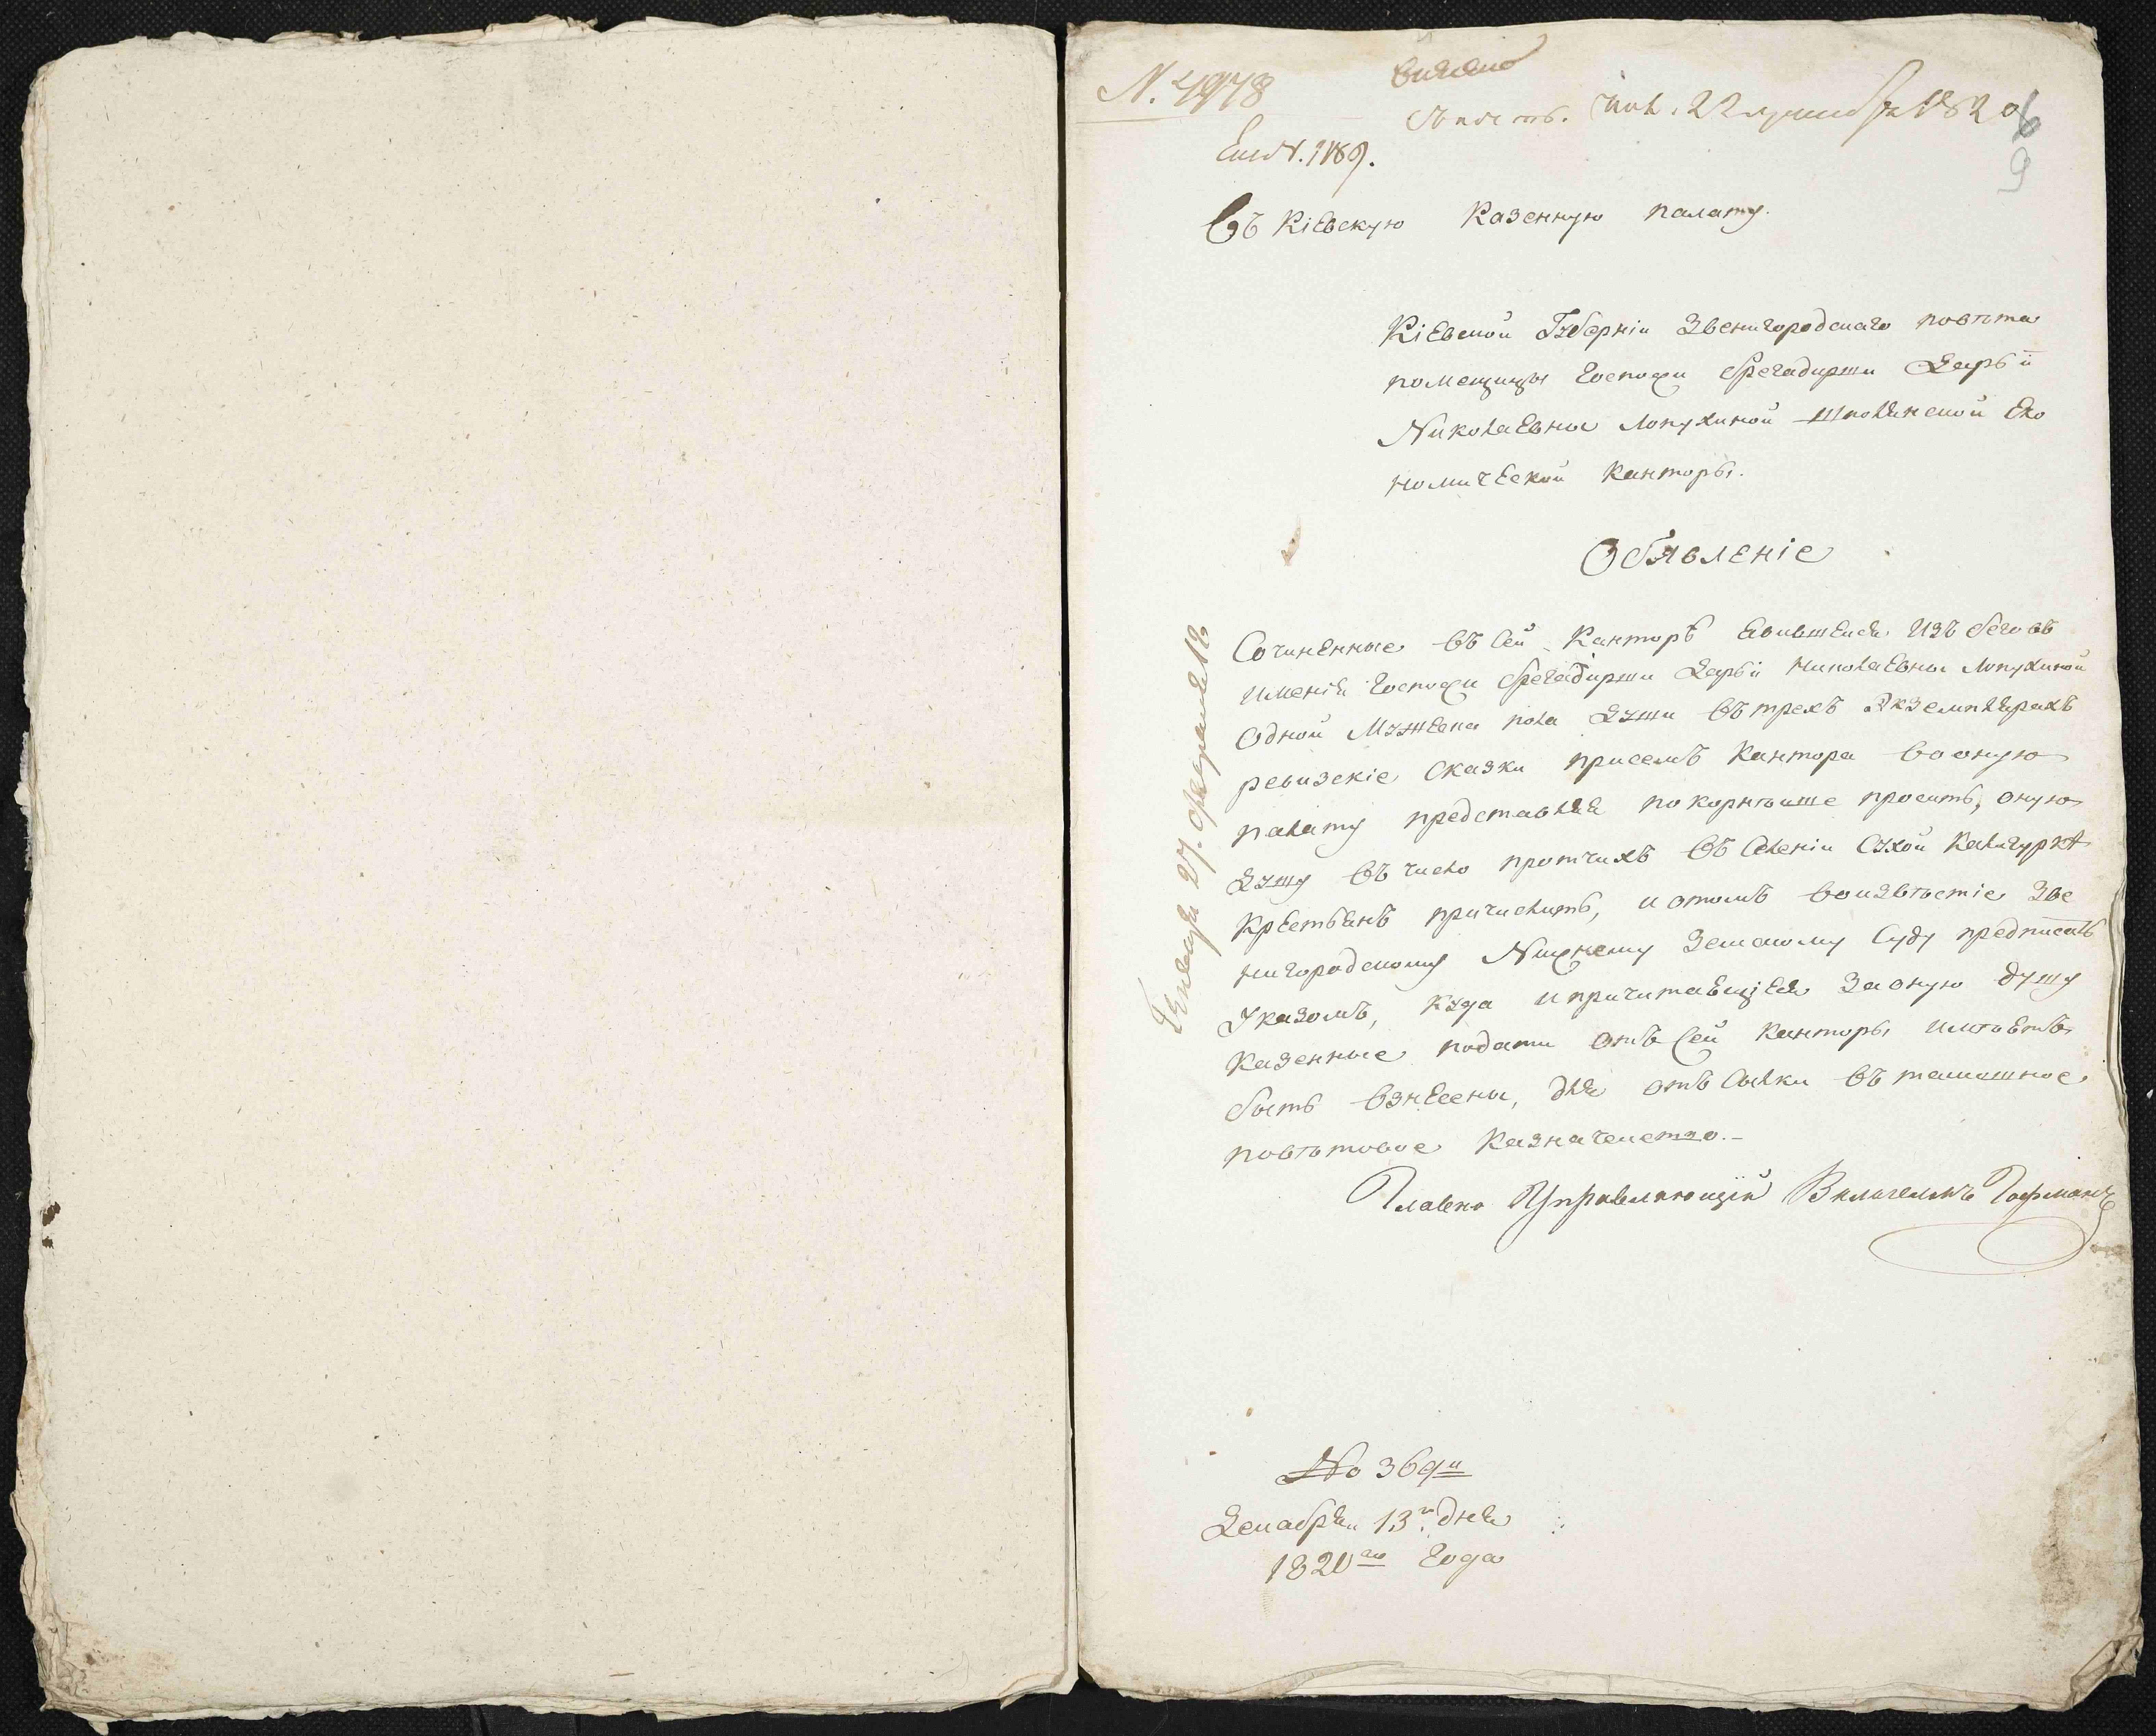 N. 4978
Въ Кіевскую Казенную палату.
Кіевской Губерніи Звенигородскаго повѣта
помещицы Госпожи брегадирши Дарьи
Николаевны Лопухиной Шполянской Эко
номической Канторы.
Объявленіе
Сочиненные въ сей Канторѣ явившейся изъ бегов въ
имении Госпожи брегадирши Дарьи Николаевны Лопухиной
одной мужеска пола души въ трехъ экземплярахъ
ревизскіе сказки присемъ Кантора во оную
палату представляя покорнѣише проситъ, оную
душу въ число протчихъ въ селеніи Сухой Калигуркѣ
крестьянъ причислить, и отомъ во извѣстіе Зве
нигородскому Нижнему Земскому Суду предписать
Указомъ, куда и причитаещіеся за оную душу
казенные подати отъ сей Канторы имѣетъ
быть взнесены, для отъсылки въ тамошное
повѣтовое Казначеиство.-
Главно Управляющій Вильгельмъ Гофманъ
No 369й
Декабря 13го дня
1820го Года